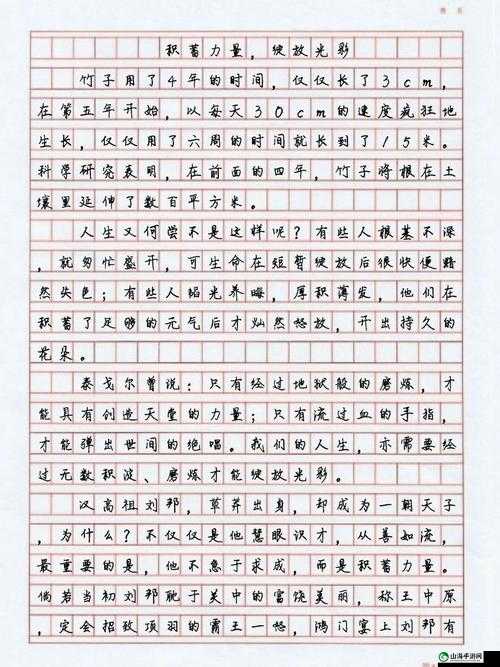 积蓄力量，绽放光彩
竹子用了4年的时间，仅仅长了3cm，
在第五年开始，以每天30cm的速度疯狂地
生长，仅仅用了六周的时间就长到了15米。
科学研究表明，在前面的四年，竹子将根在土
壤里延伸了数百平方米。
人生又何尝不是这样呢？有些人根基不深
，就匆忙盛开，可生命在短暂绽放后很快便黯
然失色；有些人韬光养晦，厚积薄发，他们在
积蓄了足够的元气后才灿然怒放，开出持久的
花朵。
泰戈尔曾说：只有经过地狱般的磨炼，才
能具有创造天堂的力量；只有流过血的手指，
才能弹出世间的绝唱。我们的人生，亦需要经
过无数积淀、磨炼才能绽放光彩。
汉高祖刘邦，草莽出身，却成为一朝天子
，为什么？不仅仅是他慧眼识才，从善如流，
最重要的是，他不急于求成，而是积蓄力量。
倘若当初刘邦耽于关中的富饶美丽，称王中原
，定会招致项羽的霸王一怒，鸿门宴上刘邦有
山海手游网